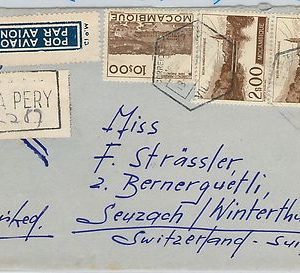 POR AVIÃO
PAR AVION
MOÇAMBIQUE
10$00
MOÇAMBIQUE
2$00
A PERY
Miss
F. Strässler,
2. Bernerguetli,
Seuzach / Winterthu
Switzerland - Su